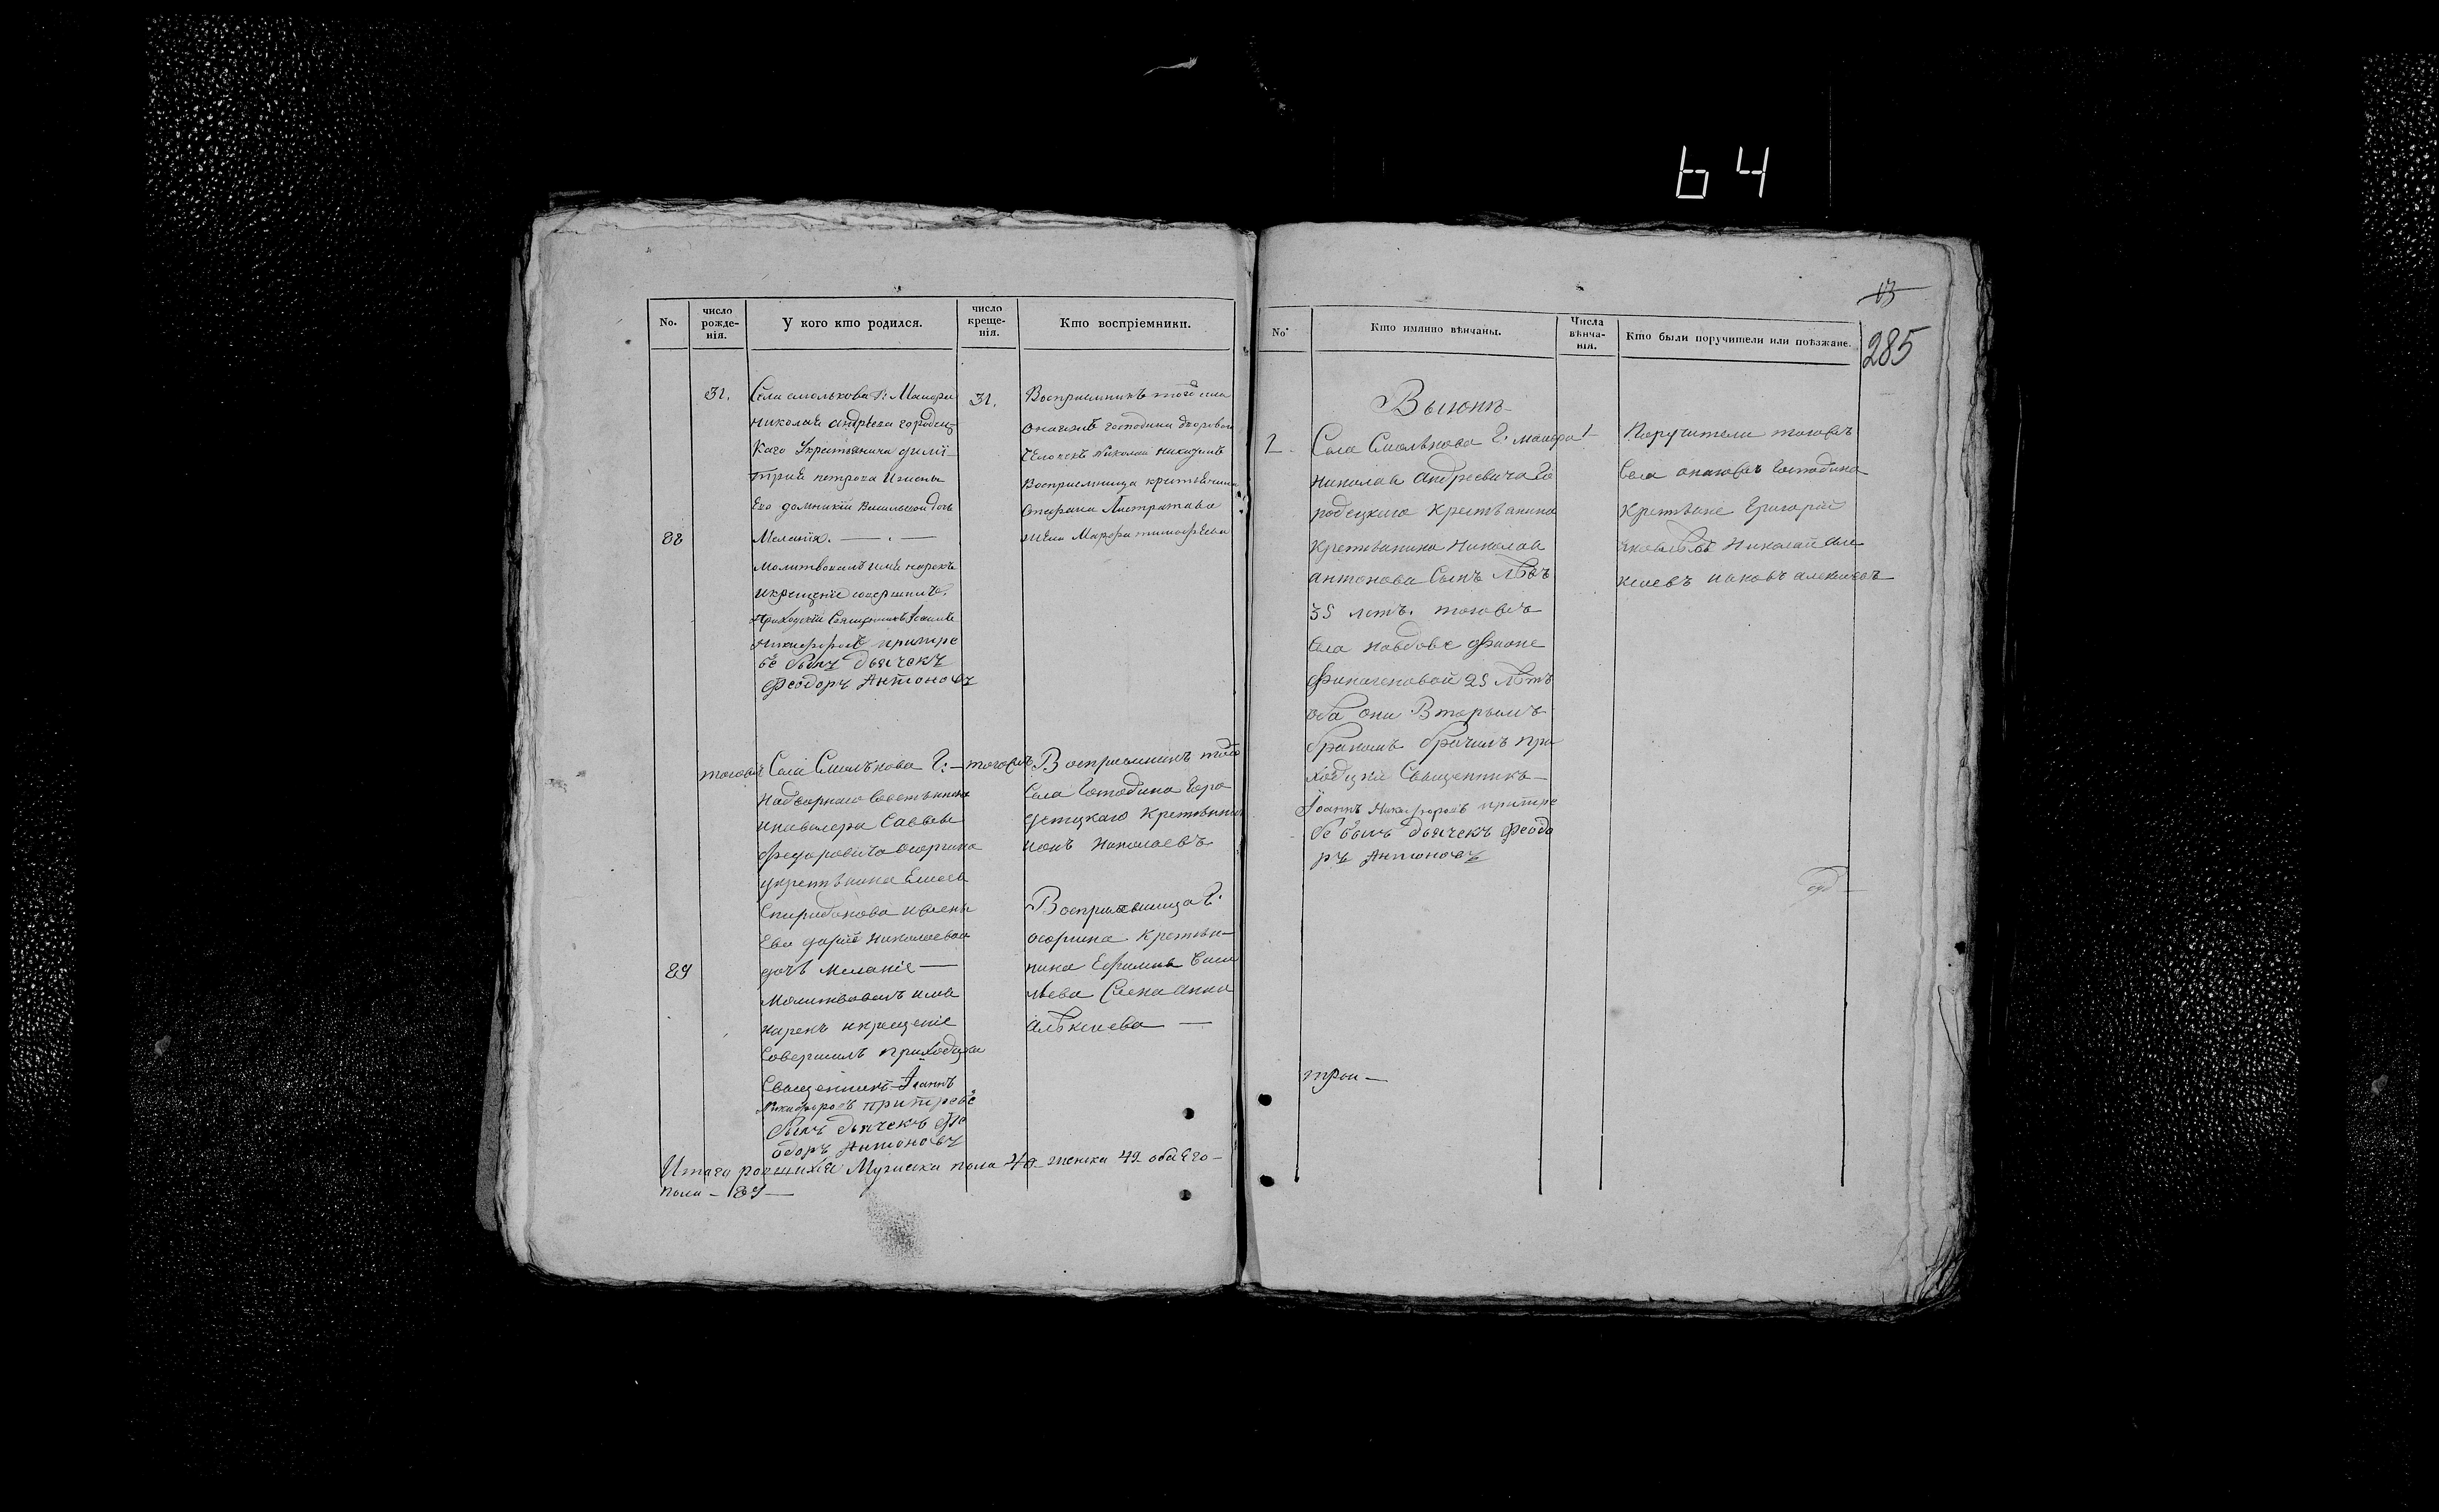 64
13
285
No.
число рожде-нія.
У кого кто родился.
число креще-нія.
Кто воспріемники.
31.
Села смолькова Г: Маиора
николая андрѣева городец-
каго Укрестьянина
петрова ижены
Его домникіи Васильевой дочь
88
Меланія. — . —
Молитвовалъ имя нарекъ
икрещеніе совершилъ.
Приходскій Священникъ Іоаннъ
Никифоровъ притре
бѣ былъ дьячекъ
Феодоръ Антоновъ
31.
Воспріемникъ того села
означен господина дворовой
человекъ Николай никифоровъ
Воспріемница крестьянина
стефана
жена Марфа тимофѣева
тогожъ
Села Смолькова Г: —
надворнаго Советьника
икавалера Саввы
Федоровича осоргина
укрестьянина Елисея
Спиридонова ижены
Ево дарьи николаевой
89
дочъ меланіе —
Молитвовалъ имя
нарекъ икрещеніе
Совершилъ приходцки
Священникъ Іоаннъ
Никифоровъ притребѣ
былъ дьячекъ Фе
одоръ Антоновъ
тогожъ
Воспріемникъ того
Села Господина горо
децкаго Крестьянинъ
Николаевъ
Воспріемница Г.
осоргина Крестья-
нина Ефима Васи
льева Анна
алѣксиева —
Итого Мужеска пола 40 женска 49 обоего —
пола — 89 —
No
Кто имянно вѣнчаны.
Числа вѣнча-нія.
Кто были поручители или поѣзжане.
1
Села Смолькова Г: маиора
николая андреевича Го
родецкаго Крестьянина
Крестьянина Николая
антонова Сынъ Левъ
35 летъ. тогожъ
Села навдове
25 лѣтъ
оба они Вторымъ
бракомъ брачилъ при
ходцки Священникъ —
Іоаннъ Никифоровъ притре
бе былъ дьячекъ Феодо
ръ Антоновъ
трои —
1
Поручители тогожъ
Села онагожъ Господина
Крестьяне Григорій
Яковлевъ Николай але
ксиевъ алексиевъ